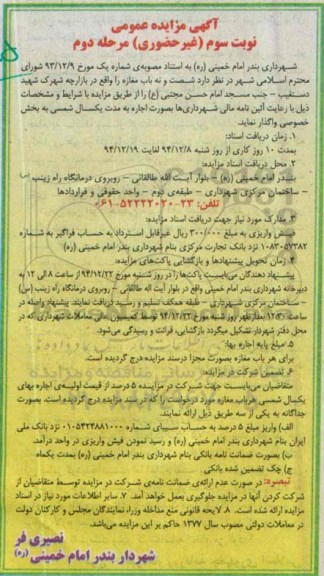 آگهی مزایده عمومی
نوبت سوم (غیرحضوری) مرحله دوم
شهرداری بندر امام خمینی (ره) به استناد مصوبه‌ی شماره یک مورخ ۹۳/۱۲/۹ شورای
محترم اسلامی شهر در نظر دارد شصت و نه باب مغازه را واقع در بازارچه شهرک شهید
دستغیب – جنب مسجد امام حسن مجتبی (ع) را از طریق مزایده با شرایط و مشخصات
ذیل با رعایت آئین نامه مالی شهرداری‌ها بصورت اجاره به مدت یکسال شمسی به بخش
خصوصی واگذار نماید.
۱. زمان دریافت اسناد:
بمدت ۱۰ روز کاری از روز شنبه ۹۴/۱۲/۸ لغایت ۹۴/۱۲/۱۹
۲. محل دریافت اسناد مزایده:
بندر امام خمینی (ره) – بلوار آیت الله طالقانی – روبروی درمانگاه راه زینب (س)
– ساختمان مرکزی شهرداری – طبقه‌ی دوم – واحد حقوقی و قراردادها
تلفن: ۲۳-۵۲۲۲۲۰۲۰-۰۶۱
۳. مدارک مورد نیاز جهت دریافت اسناد مزایده:
فیش واریزی به مبلغ ۳۰۰/۰۰۰ ریال غیرقابل استرداد به حساب فراگیر به شماره
۱۰۸۳۰۵۷۳۸۲ نزد بانک تجارت مرکزی بنام شهرداری بندر امام خمینی (ره)
۴. زمان تحویل پیشنهادها و بازگشایی پاکت‌های مزایده:
پیشنهاد دهندگان می‌بایست پاکت‌ها را در روز شنبه مورخ ۹۴/۱۲/۲۲ از ساعت ۸ الی ۱۲ به
دبیرخانه شهرداری بندر امام خمینی واقع در بلوار آیت اله طالقانی – روبروی درمانگاه راه زینب (س)
– ساختمان مرکزی شهرداری – طبقه همکف تسلیم و رسید دریافت نمایند. پیشنهاد واصله در
ساعت ۱۲:۳۰ بعدازظهر روز شنبه مورخ ۹۴/۱۲/۲۲ توسط کمیسیون عالی معاملات شهرداری که در
محل دفتر شهردار تشکیل میگردد بازگشایی، قرائت و رسیدگی می‌شود.
۵. مبلغ پایه اجاره بها:
برای هر باب مغازه بصورت مجزا درسند مزایده درج گردیده است.
۶. تضمین شرکت در مزایده:
متقاضیان می‌بایست جهت شرکت در مزایده ۵ درصد از قیمت اولیه‌ی اجاره بهای
یکسال شمسی هر باب مغازه مورد درخواست را که در سند مزایده درج گردیده است، بصورت
جداگانه به یکی از سه طریق ذیل ارائه نمایند.
الف) واریز مبلغ ۵ درصد به حساب سیبای شماره ۰۱۰۵۴۲۴۸۸۱۰۰۰ نزد بانک ملی
ایران بنام شهرداری بندر امام خمینی (ره) و رسید نمودن فیش واریزی در واحد درآمد.
ب) بصورت ضمانت نامه بانکی بنام شهرداری بندر امام خمینی (ره) بمدت یکماه
ج) چک تضمین شده بانکی.
تبصره: در صورت عدم ارائه‌ی ضمانت نامه‌ی شرکت در مزایده توسط متقاضیان از
شرکت کردن آنها در مزایده جلوگیری بعمل خواهد آمد. ۷. سایر اطلاعات مورد نیاز در اسناد
مزایده ارائه شده است. ۸. لایحه قانونی منع مداخله وزراء نمایندگان مجلس و کارکنان دولت
در معاملات دولتی مصوب سال ۱۳۳۷ حاکم بر این مزایده می‌باشد.
نصیری فر
شهردار بندر امام خمینی (ره)